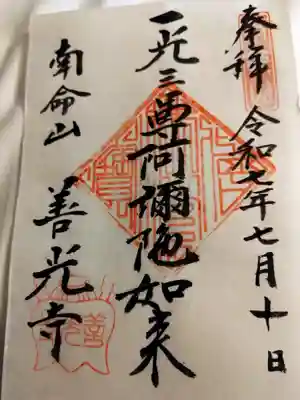 奉拝 令和七年七月十日
一光三尊阿彌陀如来
南命山 善光寺